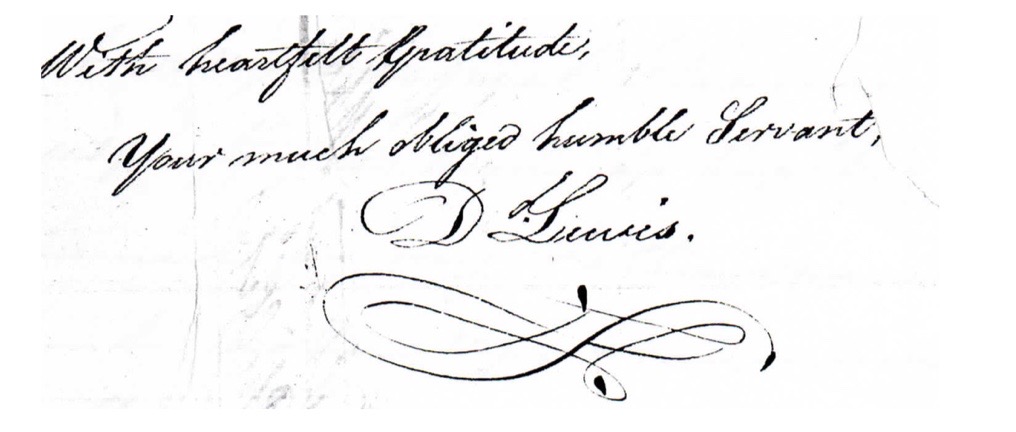 With heartfelt Gratitude,
Your much obliged humble Servant,
Dd. Lewis.